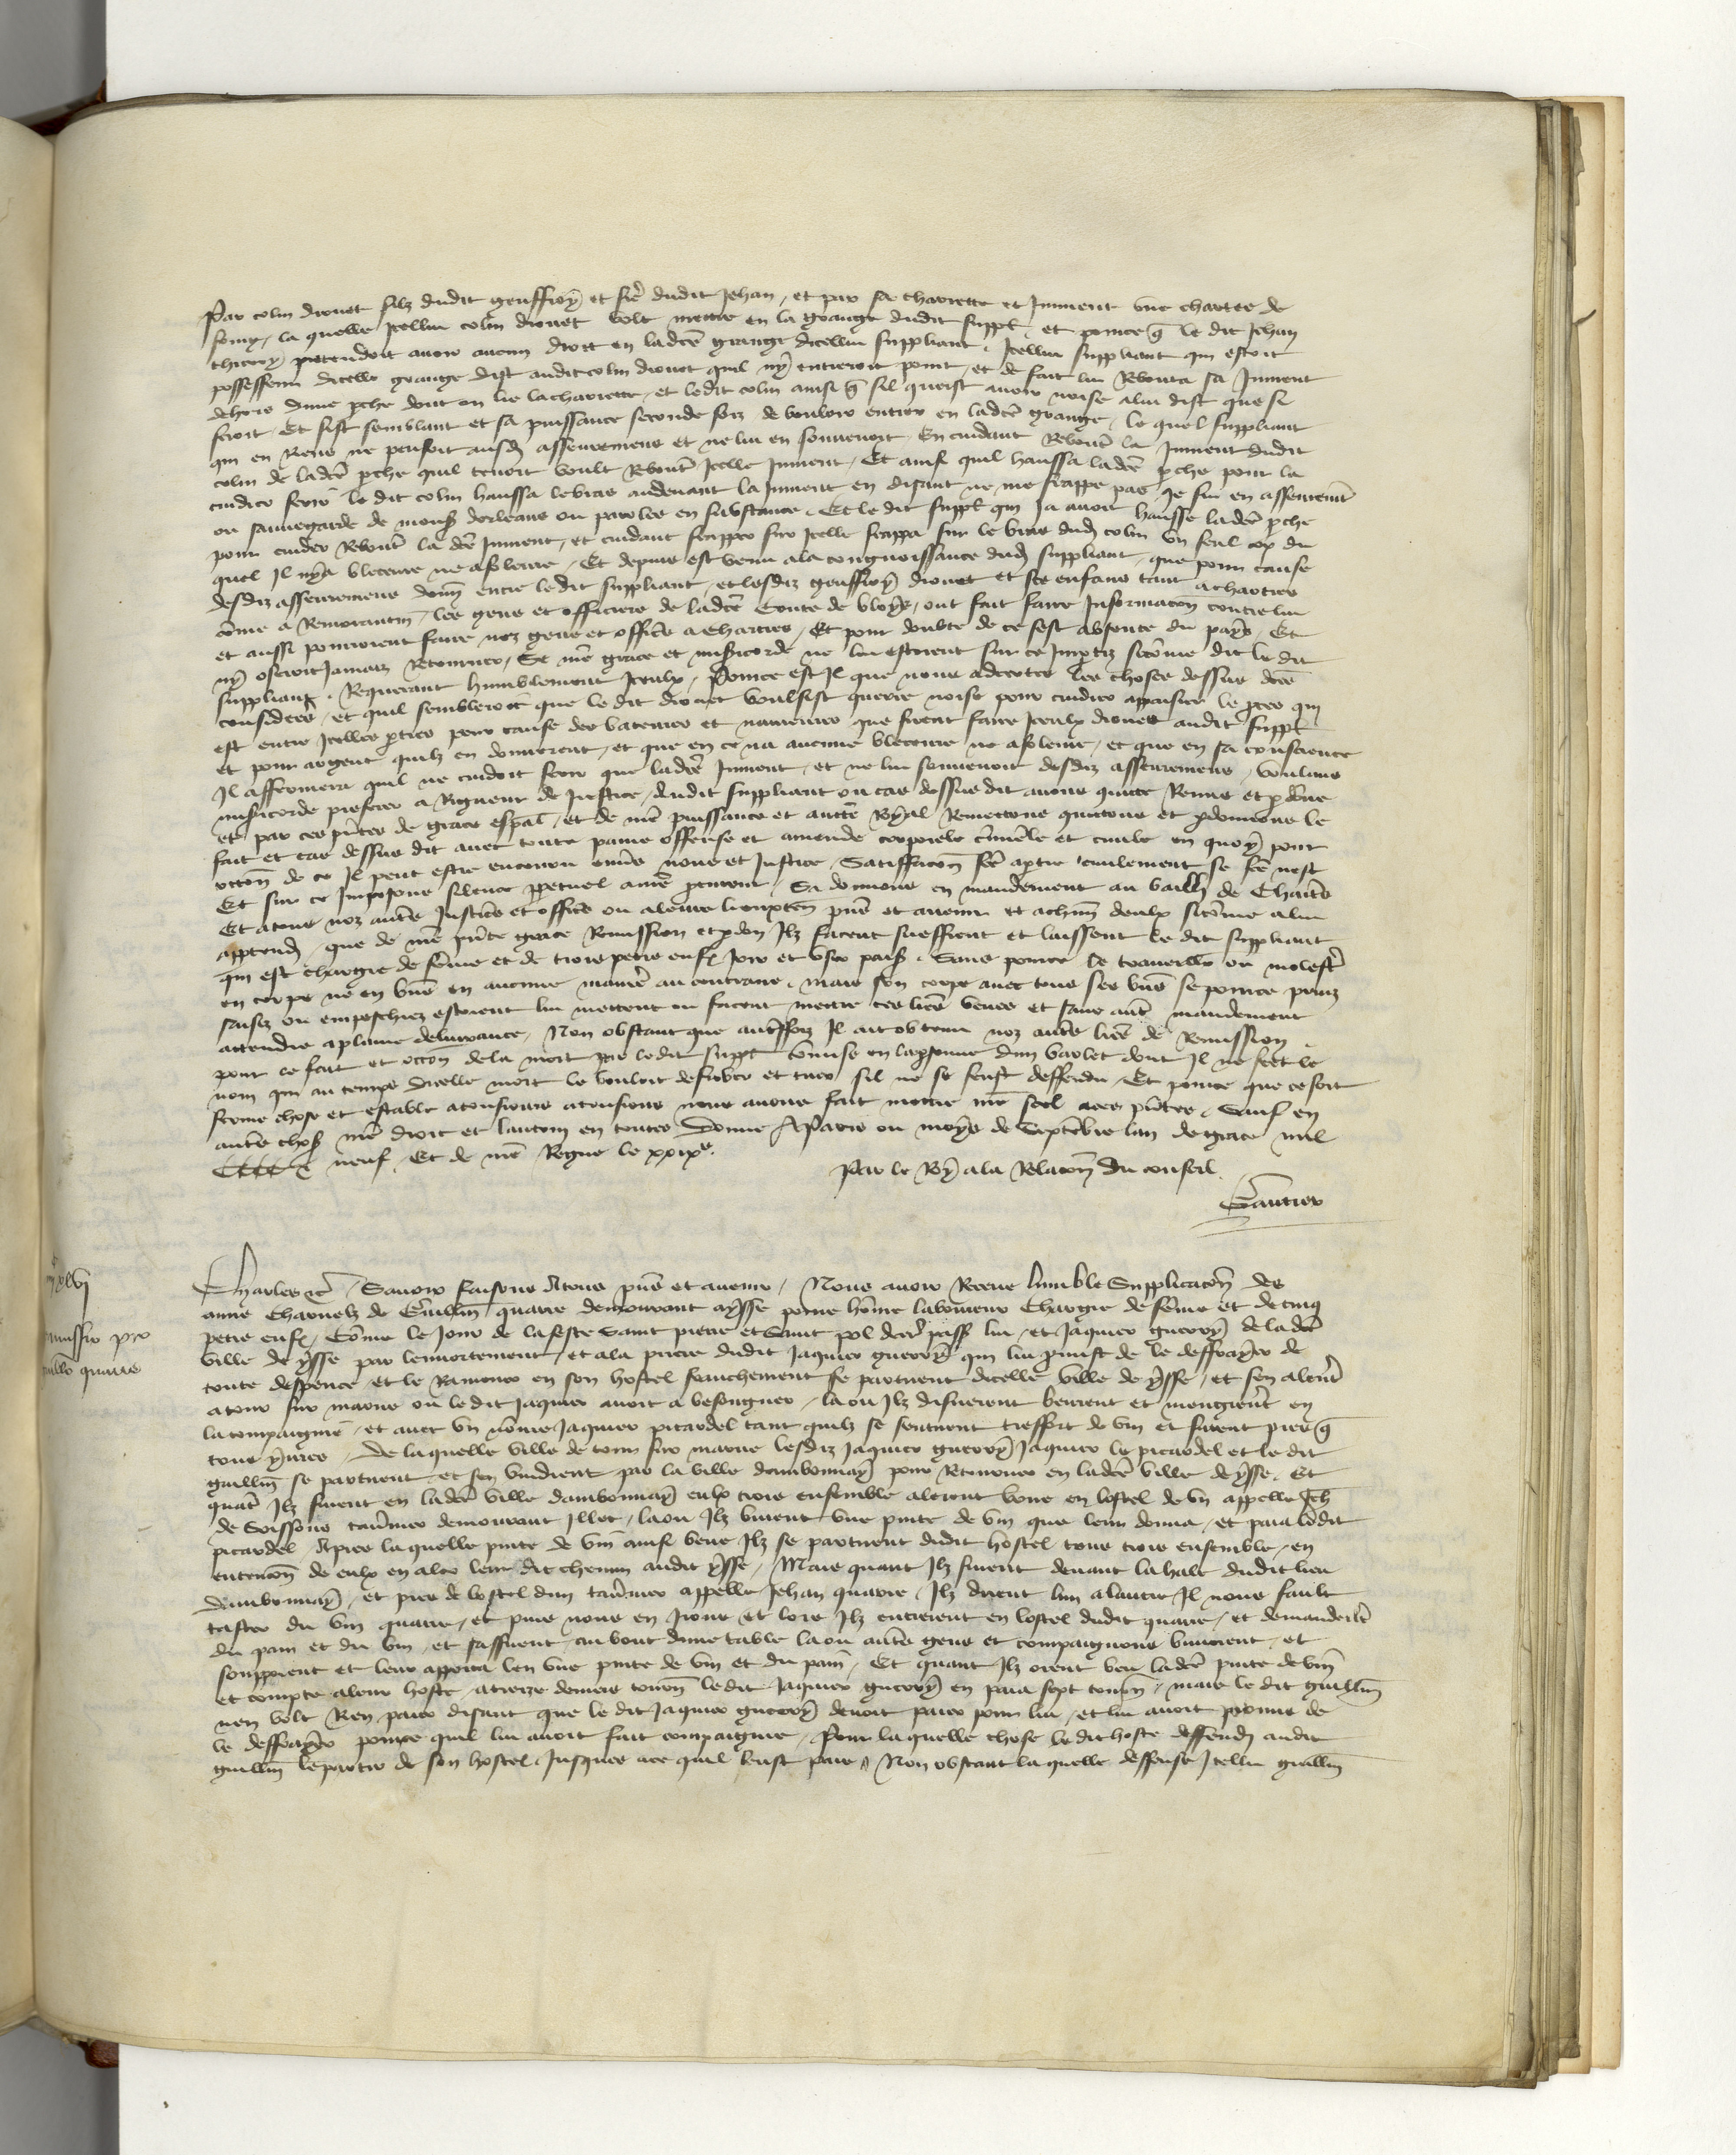 Par colin drouet filz dudit geuffroy et fre dudit Jehan, et par sa charrette et Jument une chartee de
foing, la quelle Icellui colin drouet volt mettre en la grange dudit suppl. et pource q le dit Jehan
thierry pretendoit avoir aucun droit en ladce grange dicellui suppliant, Icellui suppliant qui estoit
possesseur dicelle grange dist audit colin drouet quil ny entreroit point, et de fait lui Rebouta sa Jument
dehors dune pche dont on lie la charrette, et ledit colin ainsi q sil queist avoir noise a lui dist que si
feroit, Et fist semblant et sa puissance seconde foiz de vouloir entrer en ladce grange, le quel suppliant
qui en Riens ne pensoit ausd asseuremens et ne lui en souvenoit, En cuidant Reboutr la Jument dudit
colin de ladce pche quil tenoit voult Reboutr Icelle Jument, Et ainsi quil haussa ladce pche pour la
cuidier ferir le dit colin haussa le bras audevant la Jument en disant ne me frappe pas Je sui en asseuremt
ou sauvegarde de mons dorleans ou paroles en substance, Et le dit suppl qui Ja avoit hausse ladce pche
pour cuider Reboutr la dce Jument, et cuidant frapper sur Icelle frappa sur le bras dud colin un seul cop du
quel Il nya bleceure ne afoleure, Et depuis est venu ala congnoissance dud suppliant, que pour cause
desdiz asseuremens donn entre ledit suppliant, et lesdiz geuffroy drouet et ses enfans tant a chartres
comme a Remorantin, les gens et officiers de ladce Conte de bloys, ont fait faire Informacon contre lui
et aussi pourroient faire noz gens et offics a Chartres, Et pour doubte de ce sest absente du pays, Et
ny oseroit Jamaiz Retourner, Se nre grace et misicorde ne lui estoient sur ce Imptiz sicomme dit le dit
suppliant, Requerant humblement Icculx, Pource est Il que nous adcertes les choses dessus dces
considerees, et quil sembleroit que le dit drouet voulsist querre noise pour cuidier appaisier le pces qui
est entre Icelles pties pour cause des bateures et navreures que firent faire Iceulx drouez audit suppl
et pour argent quilz en donnerent, et que en ce na aucune bleceure ne afoleure, et que en sa conscience
Il affermera quil ne cuidoit ferir que ladce Jument, et ne lui souvenoit desdiz asseuremens, voulans
misicorde preferer a Rigueur de Justice, Audit suppliant ou cas dessusdit avons quitte Remis et pdonne
etc par ces pntes de grace espal, et de nre puissance et auctte Royal Remettons quittons et pdonnons le
fait et cas dessus dit avec toute paine offense et amende corporele criminele et civile en quoy pour
occon de ce Il peut estre encouru envers nous et Justice, Satisfacon fce aptie civilement se fce nest
Et sur ce Imposons silence ppetuel a nre pcureur, Si donnons en mandement au bailli de Chartres
Et a tous noz autrs Justics et offics ou a leurs lieuxten pns et avenir et achun deulx sicomme a lui
apptend, que de nre pnte grace Remission et pdon Ilz facent sueffrent et laissent le dit suppliant
qui est chargie de femme et de trois petiz enfs Joir et user paisi. Sans pource le travaillier ou molestr
en corps ne en biens en aucune maniere au contraire, mais son corps avec tous ses biens se pource prinz
saisiz ou empeschiez estoient lui mettent ou facent mettre ces lres veues et sans autr mandement
attendre a plaine delivrance, Non obstant que autrffoiz Il ait obtenu noz autrs lres de Remission
pour le fait et occon dela mort que ledit suppl commise en la psonne dun varlet dont Il ne scet le
nom qui au temps dicelle mort le vouloit desrober et tuer sil ne se feust deffendu, Et pource que ce soit
ferme chose et estable atousiours atousiours nous avons fait mettre nre scel aces pntes, Sauf en
autrs choses nre droit et lautrui en toutes Donne Aparis ou moys de Septembre lan de grace mil
CCCC & neuf, Et de nre Regne le xxixe.
Par le Roy ala Relacon du conseil.
Gautier
xlvi
Remissio pro
guillo quarre
Charles etc, Savoir faisons Atous pns et avenir, Nous avoir Receue lumble Supplicacon des
amis Charnelz de Guillin quarre demourant aysse povre homme laboureur Chargie de femme et de cinq
petiz enfs, Comme le Jour de la feste saint pierre et saint pol derr passe lui, et Jaquier guerry de la dce
ville de ysse par lennortement, et ala priere dudit Jaquier guerry qui lui pmist de le deffrayer de
toute despence, et le Ramener en son hostel franchement se partirent dicelle ville de ysse, et sen alerent
a tour sur marne ou le dit Jaquier avoit a besongner, la ou Ilz disnerent burent et mengierent en
la compaignie, et avec un nomme Jaquier picardel tant quilz se sentirent tresfort de vin et furent pres q
tous yvres, De laquelle ville de tour sur marne lesdiz Jaquier guerry Jaquier le picardel et le dit
guillin se partirent, et sen vindrent par la ville dambonnay pour Retourner en ladce ville de ysse, Et
quant Ilz furent en ladce ville dambonnay eulx trois ensemble alerent boire en lostel de un appelle Jeh
de Soissons tavernier demourant Illec, la ou Ilz burent une pinte de vin que leur donna, et paia ledit
picardel, Apres laquelle pinte de vin ainsi beue Ilz se partirent dudit hostel tous trois ensemble, en
entencon de eulx en aler leur dit chemin audit ysse, Mais quant Ilz furent devant la hale dudit lieu
dambonnay, et pres de lostel dun tavernier appelle Jehan quarre, Ilz dirent lun a lautre Il nous fault
taster du vin quarre, et puis nous en Irons et lors Ilz entrerent en lostel dudit quarre, et demanderent
du pain et du vin, et sassirent au bout dune table la ou autrs gens et compaignons buvoient, et
souppoient et leur apporta len une pinte de vin et du pain, Et quant Ilz orent beu ladce pinte de vin
et compte a leur hoste, a treize deniers tourn ledit Jaquier guerry en paia sept tourn, mais le dit guillin
nen volt Rien paier disant que le dit Jaquier guerry devoit paier pour lui, et lui avoit promis de
le deffrayer pource quil lui avoit fait compaignie, Pour laquelle chose le dit hoste deffendi audit
guillin le partir de son hostel, Jusques ace quil leust paie, Non obstant la quelle deffense Icellui guillin